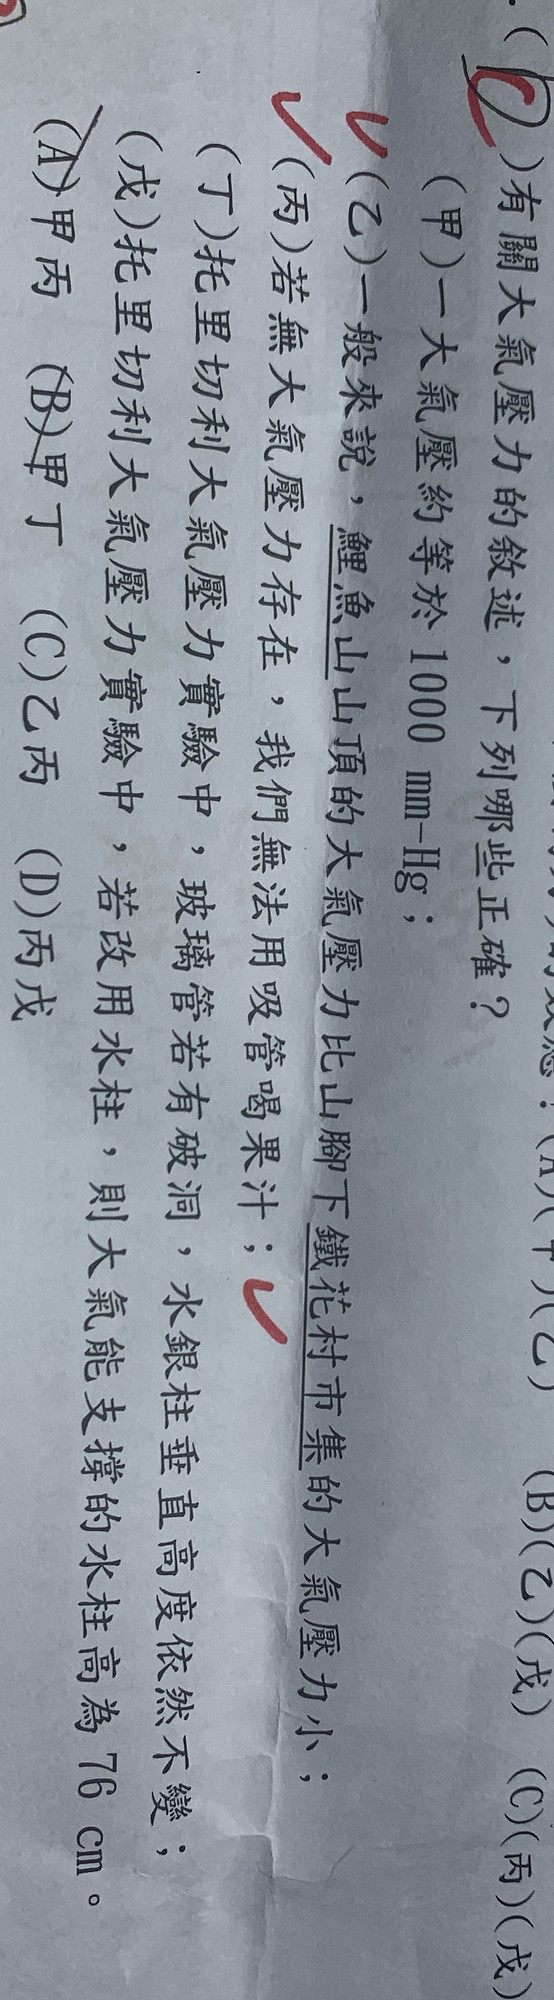 (A)(甲)(乙) (B)(乙)(戊) (C)(丙)(戊)
(C)有關大氣壓力的敘述，下列哪些正確？
(甲)一大氣壓約等於1000 mm-Hg；
(乙)一般來說，鯉魚山山頂的大氣壓力比山腳下鐵花村市集的大氣壓力小；
(丙)若無大氣壓力存在，我們無法用吸管喝果汁；
(丁)托里切利大氣壓力實驗中，玻璃管若有破洞，水銀柱垂直高度依然不變；
(戊)托里切利大氣壓力實驗中，若改用水柱，則大氣能支撐的水柱高為76 cm。
(A)甲丙 (B)甲丁 (C)乙丙 (D)丙戊